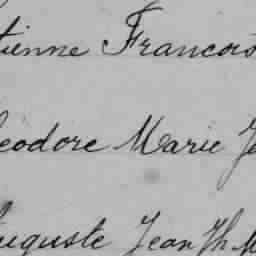 tienne Francois
eodore Marie Je
uguste Jean Th M